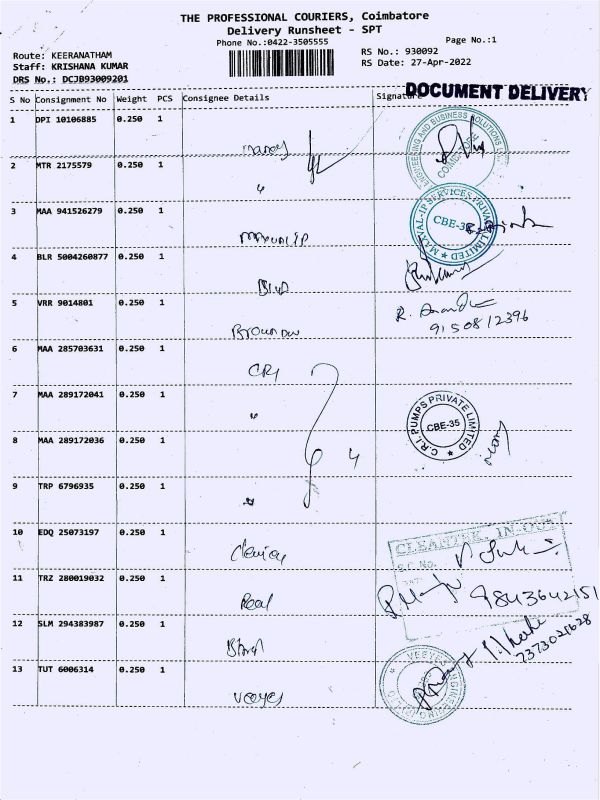 THE PROFESSIONAL COURIERS, Coimbatore
Delivery Runsheet - SPT
Phone No.:0422-3505555
Page No.:1
Route: KEERANATHAM
RS No.: 930092
Staff: KRISHANA KUMAR
RS Date: 27-Apr-2022
DRS No.: DCJB93009201
DOCUMENT DELIVERY
S No Consignment No Weight PCS Consignee Details Signature
1 DPI 10106885 0.250 1
ENGINEERING AND BUSINESS SOLUTIONS
COIMBATORE
2 MTR 2175579 0.250 1 "
3 MAA 941526279 0.250 1
M-IP SERVICES PRIVATE LIMITED
CBE-35
4 BLR 5004260877 0.250 1
5 VRR 9014801 0.250 1
R.
9150812396
6 MAA 285703631 0.250 1 CRI
7 MAA 289172041 0.250 1 "
C.R.I. PUMPS PRIVATE LIMITED
CBE-35
8 MAA 289172036 0.250 1 4
9 TRP 6796935 0.250 1 "
10 EDQ 25073197 0.250 1
CLEANTEK, IN-OUT
S.C. No.
11 TRZ 280019032 0.250 1 Real
9843642151
12 SLM 294383987 0.250 1
7373021628
13 TUT 6006314 0.250 1
ENGINEERING